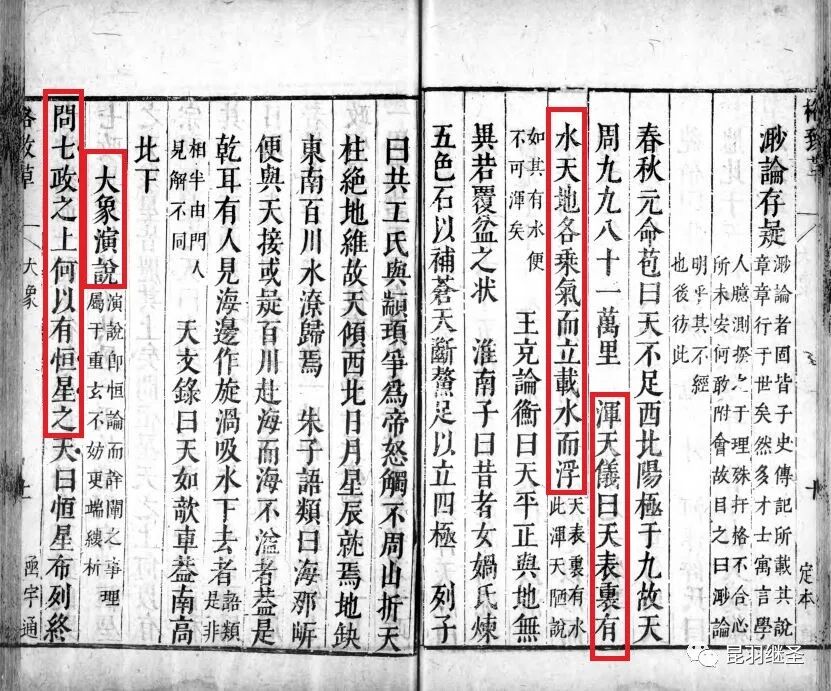 格致草
定本
渺論存疑
渺論者固皆子史傳記所載其說
章章行于世矣然多才士寓言學
人臆測揆之于理殊扞格不合心
所未安何敢附會故目之曰渺論
明乎其不經
也後彷此
春秋元命苞曰天不足西北陽極于九故天
周九九八十一萬里 渾天儀曰天表裏有
水天地各乘氣而立載水而浮 天表裏有水
此渾天陋說
如其有水便
不可渾矣 王充論衡曰天平正與地無
異若覆盆之狀 淮南子曰昔者女媧氏煉
五色石以補蒼天斷鰲足以立四極 列子
曰共工氏與顓頊爭爲帝怒觸不周山折天
柱絕地維故天傾西北日月星辰就焉地缺
東南百川水潦歸焉 朱子語類曰海那岍
便與天接或疑百川赴海而海不溢者葢是
乾耳有人見海邊作旋渦吸水下去者 語類
是非
相半由門人
見解不同 天文錄曰天如欹車葢南高
北下
大象演說 演說即恒論而詳闡之事理
屬于重玄不妨更端縷析
問七政之上何以有恒星之天曰恒星布列終
格致草 大象 函宇通
昆羽继圣